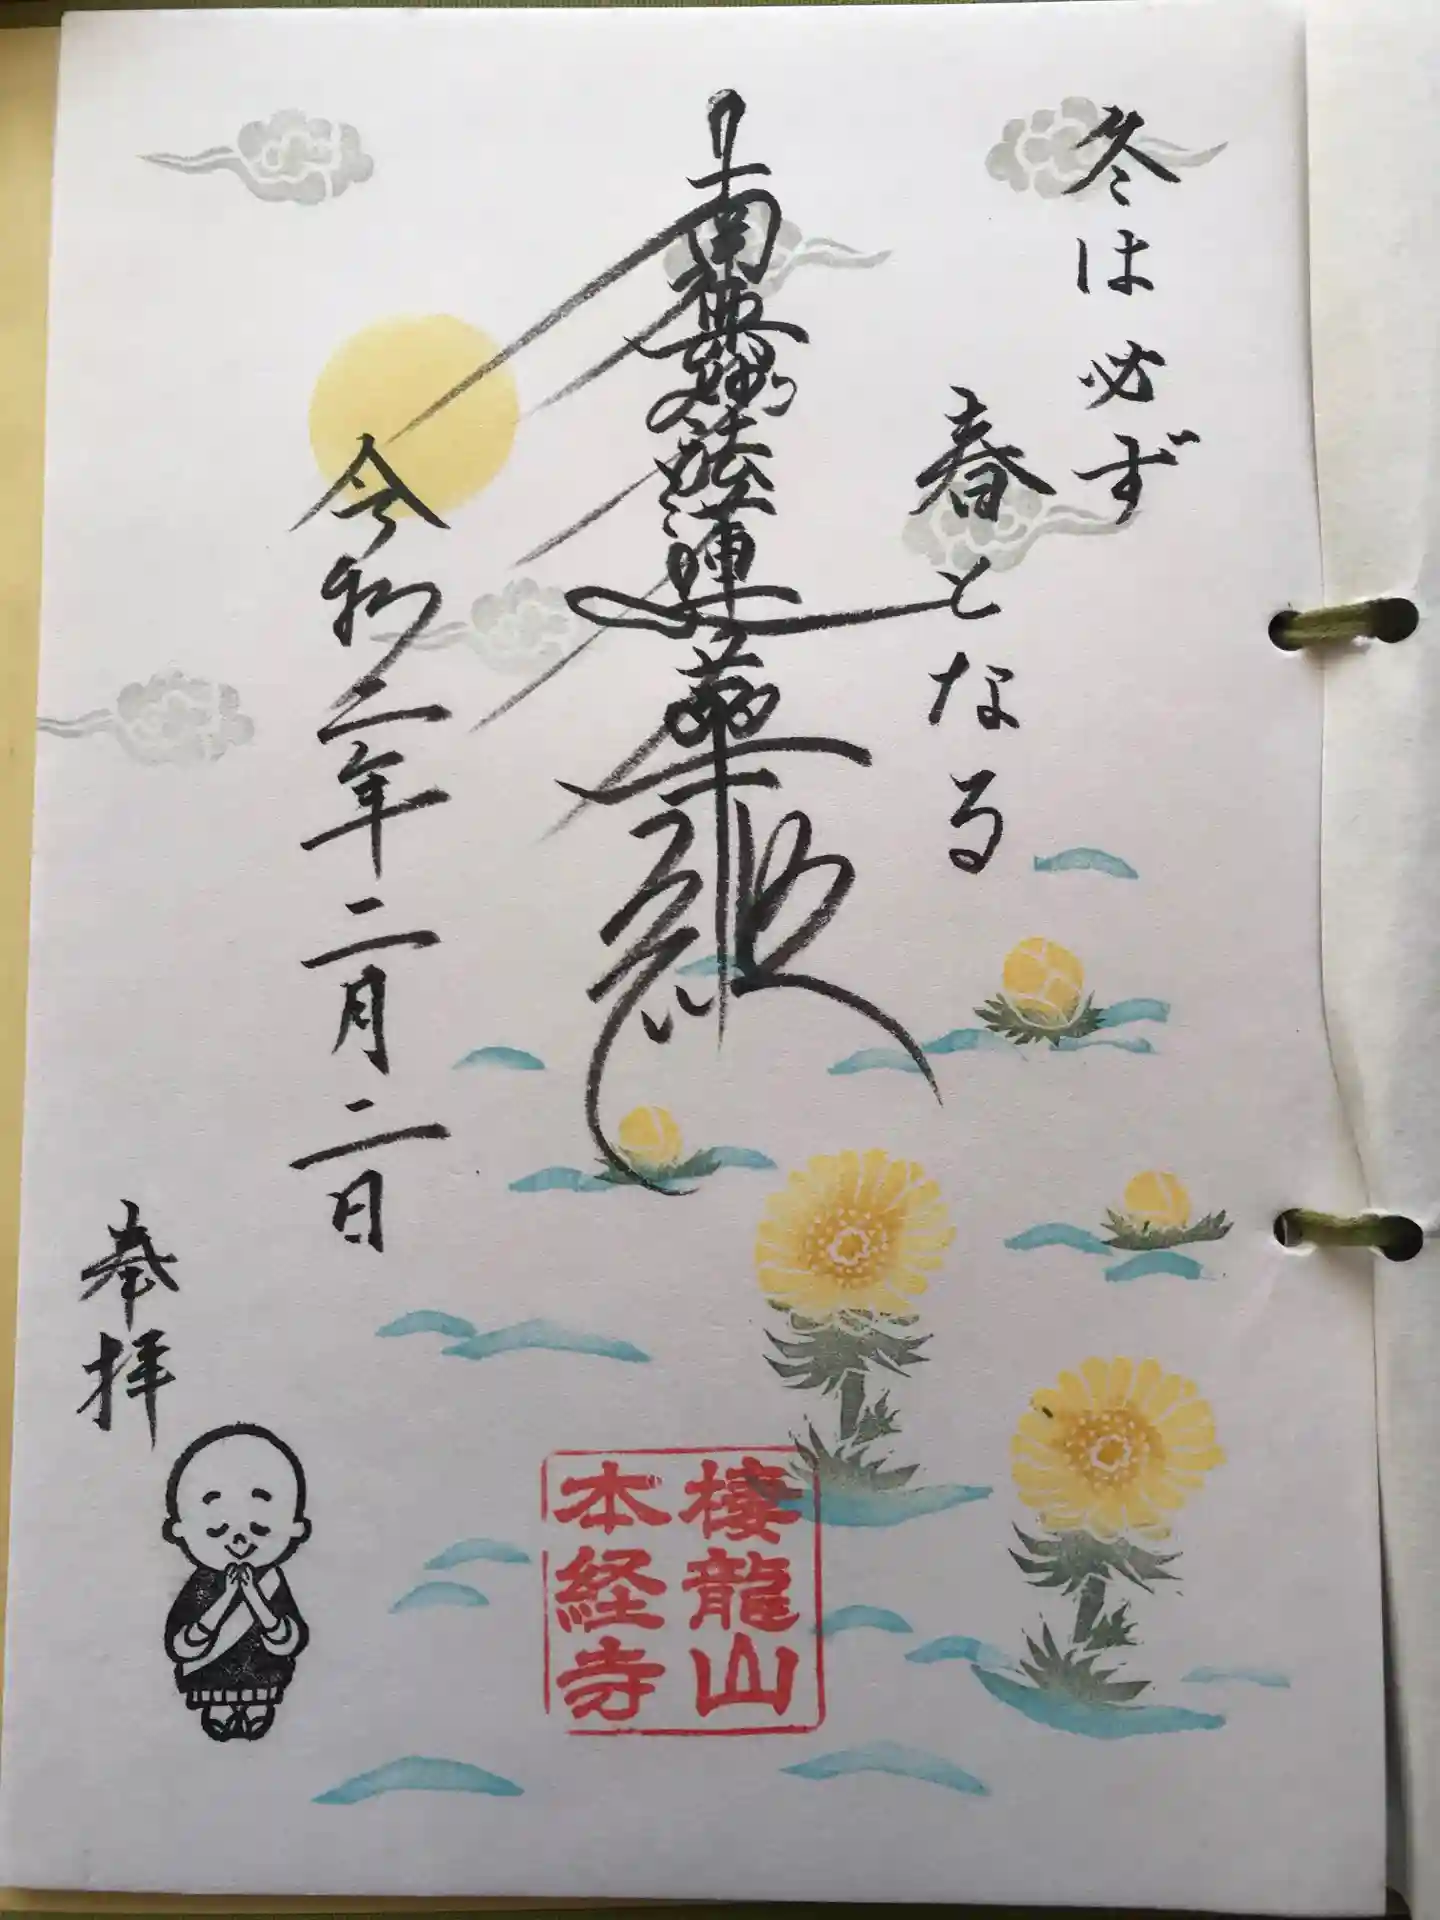 冬は必ず
春となる
南無妙法蓮華経
令和二年二月二日
奉拝
棲龍山
本経寺